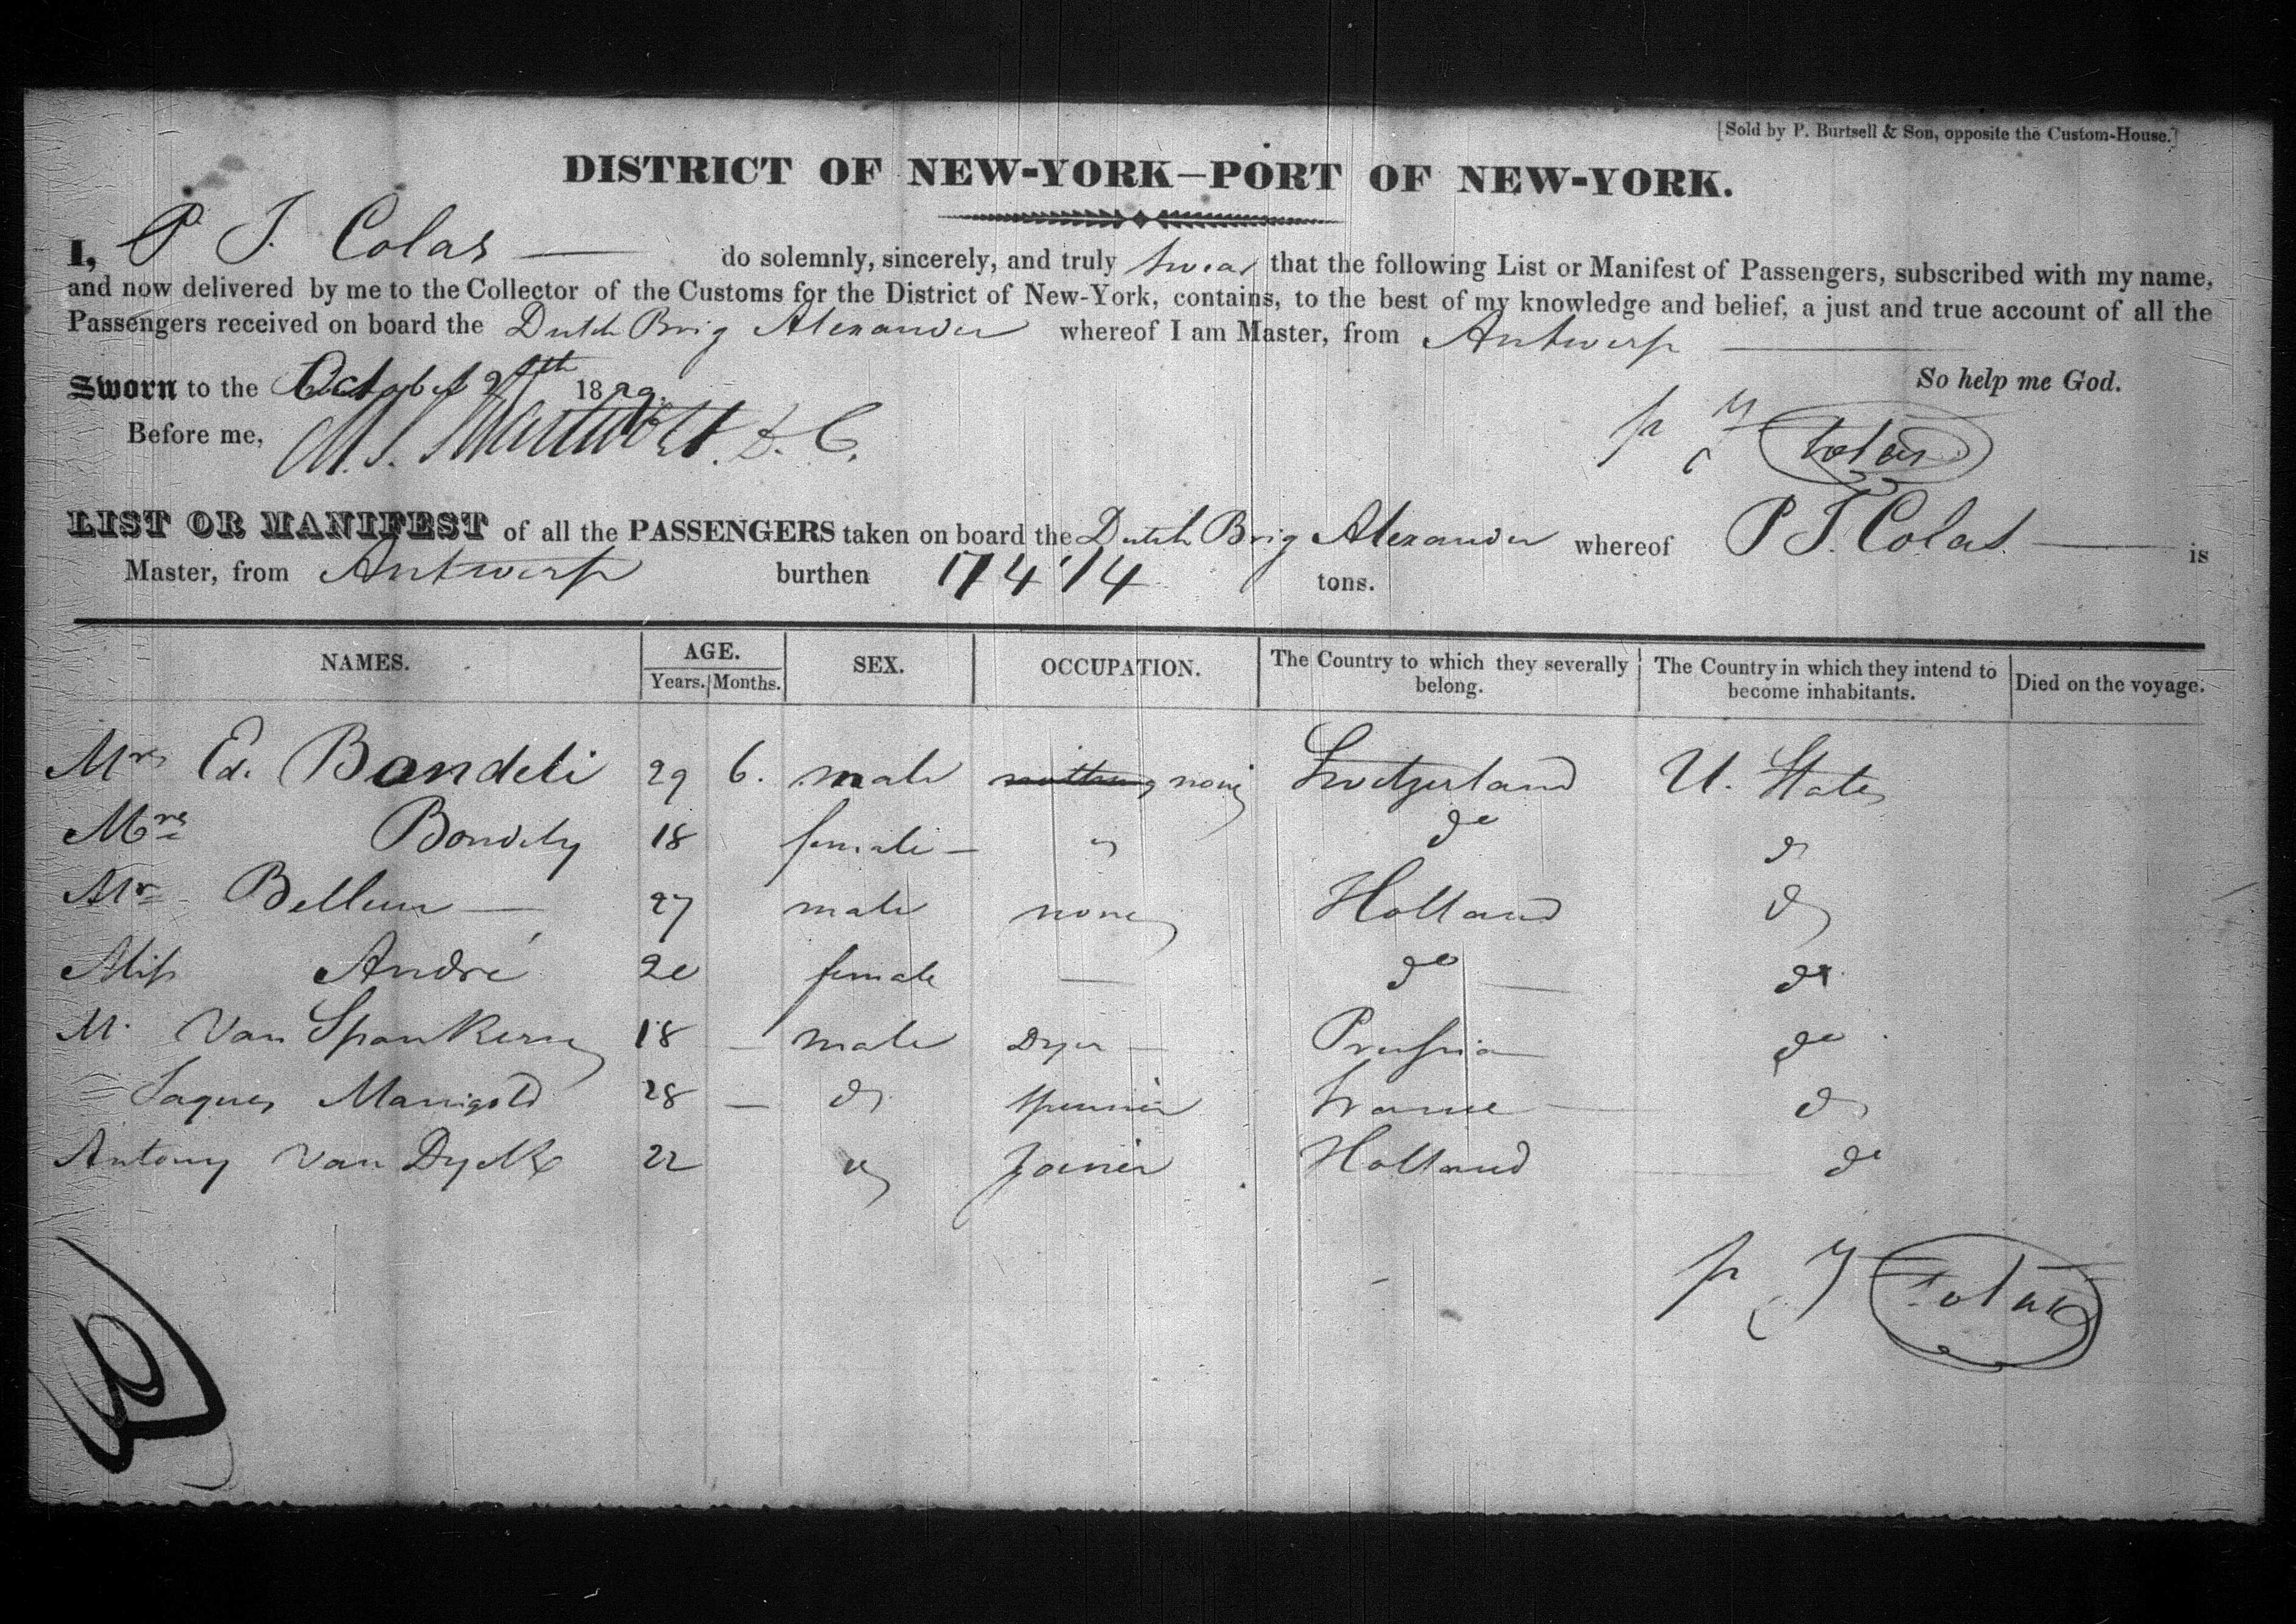 [Sold by P. Burtsell & Son, opposite the Custom-House.]
DISTRICT OF NEW-YORK—PORT OF NEW-YORK.
I, P J. Colas — do solemnly, sincerely, and truly swear that the following List or Manifest of Passengers, subscribed with my name,
and now delivered by me to the Collector of the Customs for the District of New-York, contains, to the best of my knowledge and belief, a just and true account of all the
Passengers received on board the Dutch Brig Alexander whereof I am Master, from Antwerp —
So help me God.
Sworn to the October 1829.
Before me, D. C.
p J Colas
LIST OR MANIFEST of all the PASSENGERS taken on board the Dutch Brig Alexander whereof P J. Colas — is
Master, from Antwerp burthen 174 14 tons.
NAMES. AGE. Years. Months. SEX. OCCUPATION. The Country to which they severally belong. The Country in which they intend to become inhabitants. Died on the voyage.
Mr Ed. Bandeli 29 6. male nothing none Switzerland U. States
Mrs Bondely 18 female — " do do
Mr Bellun — 27 male none Holland do
Miss André 20 female — do — do
M. Van Spankern 18 — male Dyer — Prussia do
= Jaques Manigold 28 — do Spinner France — do
Antony Van Dyck 22 do Joiner Holland do
p J Colas